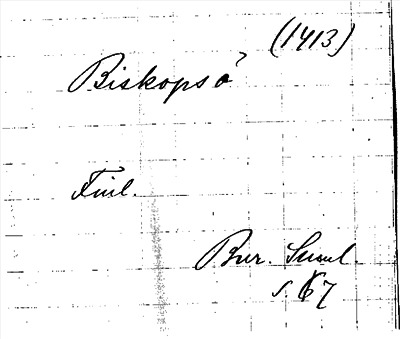 (1413)
Biskopsö
Finl.
Bur. Suml.
s. 67